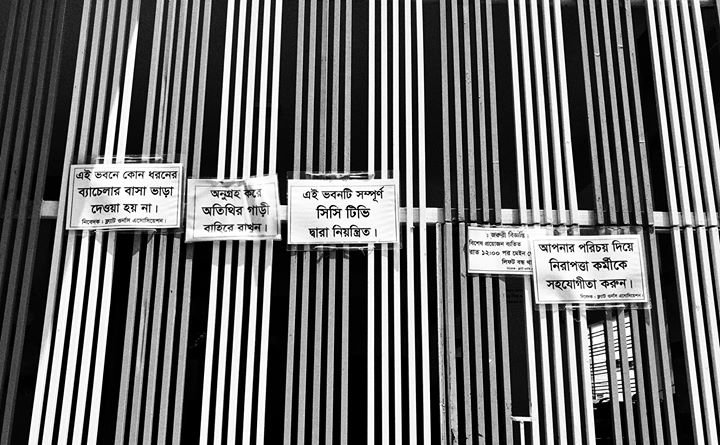 এই ভবনে কোন ধরনের
ব্যাচেলার বাসা ভাড়া
দেওয়া হয় না।
নিবেদক- ফ্ল্যাট ওনার্স এসোসিয়েশন।
অনুগ্রহ করে
অতিথির গাড়ী
বাহিরে রাখুন।
এই ভবনটি সম্পূর্ণ
সিসি টিভি
দ্বারা নিয়ন্ত্রিত।
: জরুরী বিজ্ঞপ্তি :
বিশেষ প্রয়োজন ব্যতিত
রাত ১২:০০ পর মেইন
লিফট বন্ধ
নিবেদক : ফ্ল্যাট
আপনার পরিচয় দিয়ে
নিরাপত্তা কর্মীকে
সহযোগীতা করুন।
নিবেদক- ফ্ল্যাট ওনার্স এসোসিয়েশন।